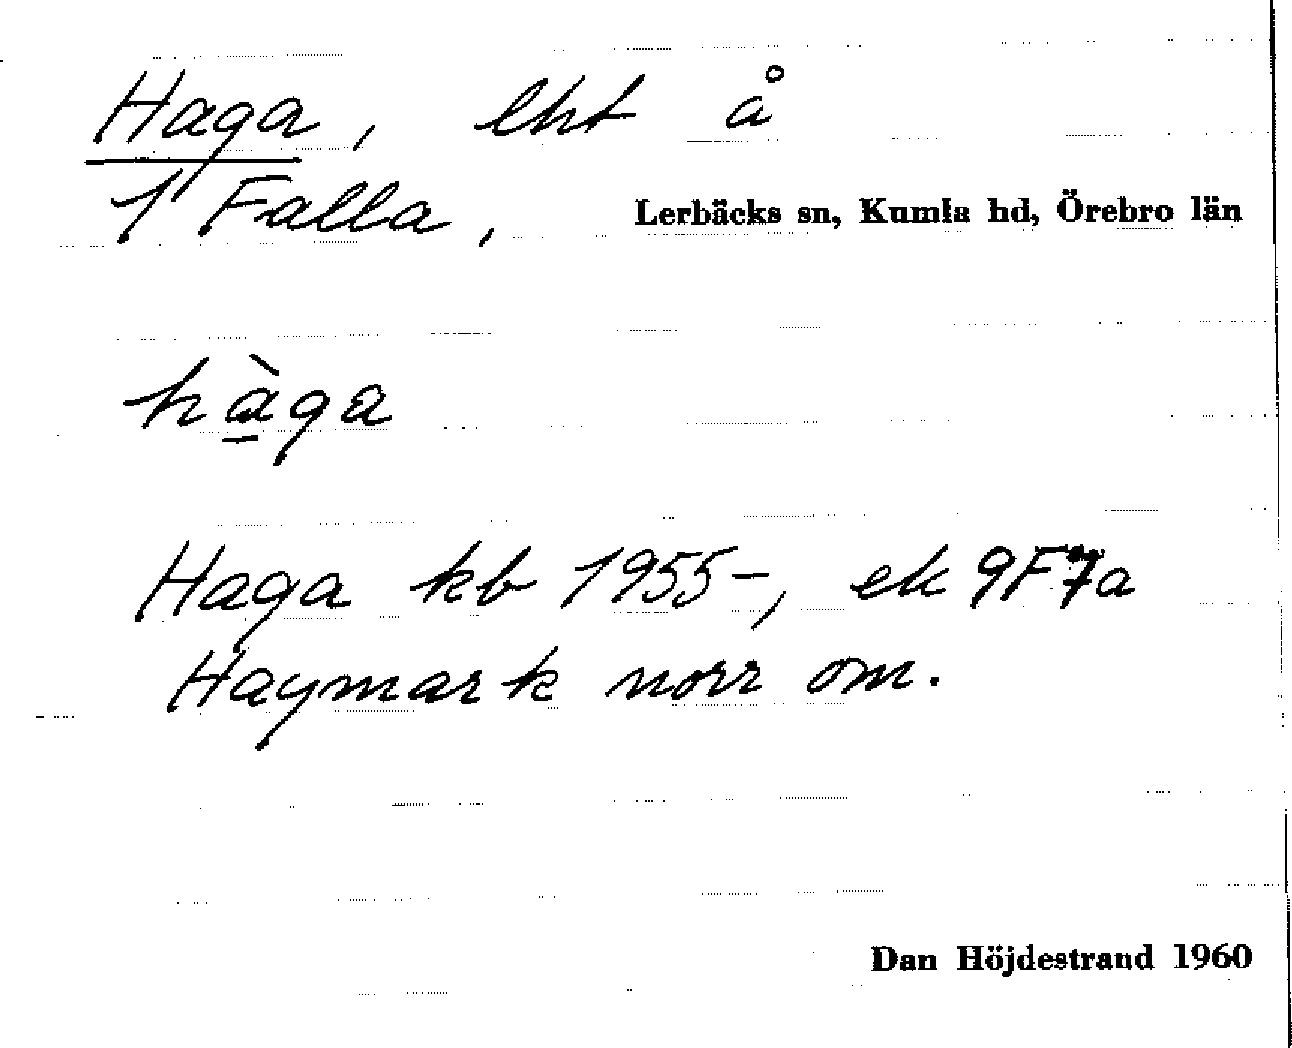 Haga, lht å
1 Falla, Lerbäcks sn, Kumla hd, Örebro län
hàga
Haga kb 1955–, ek 9F7a
Haymark norr om.
Dan Höjdestrand 1960